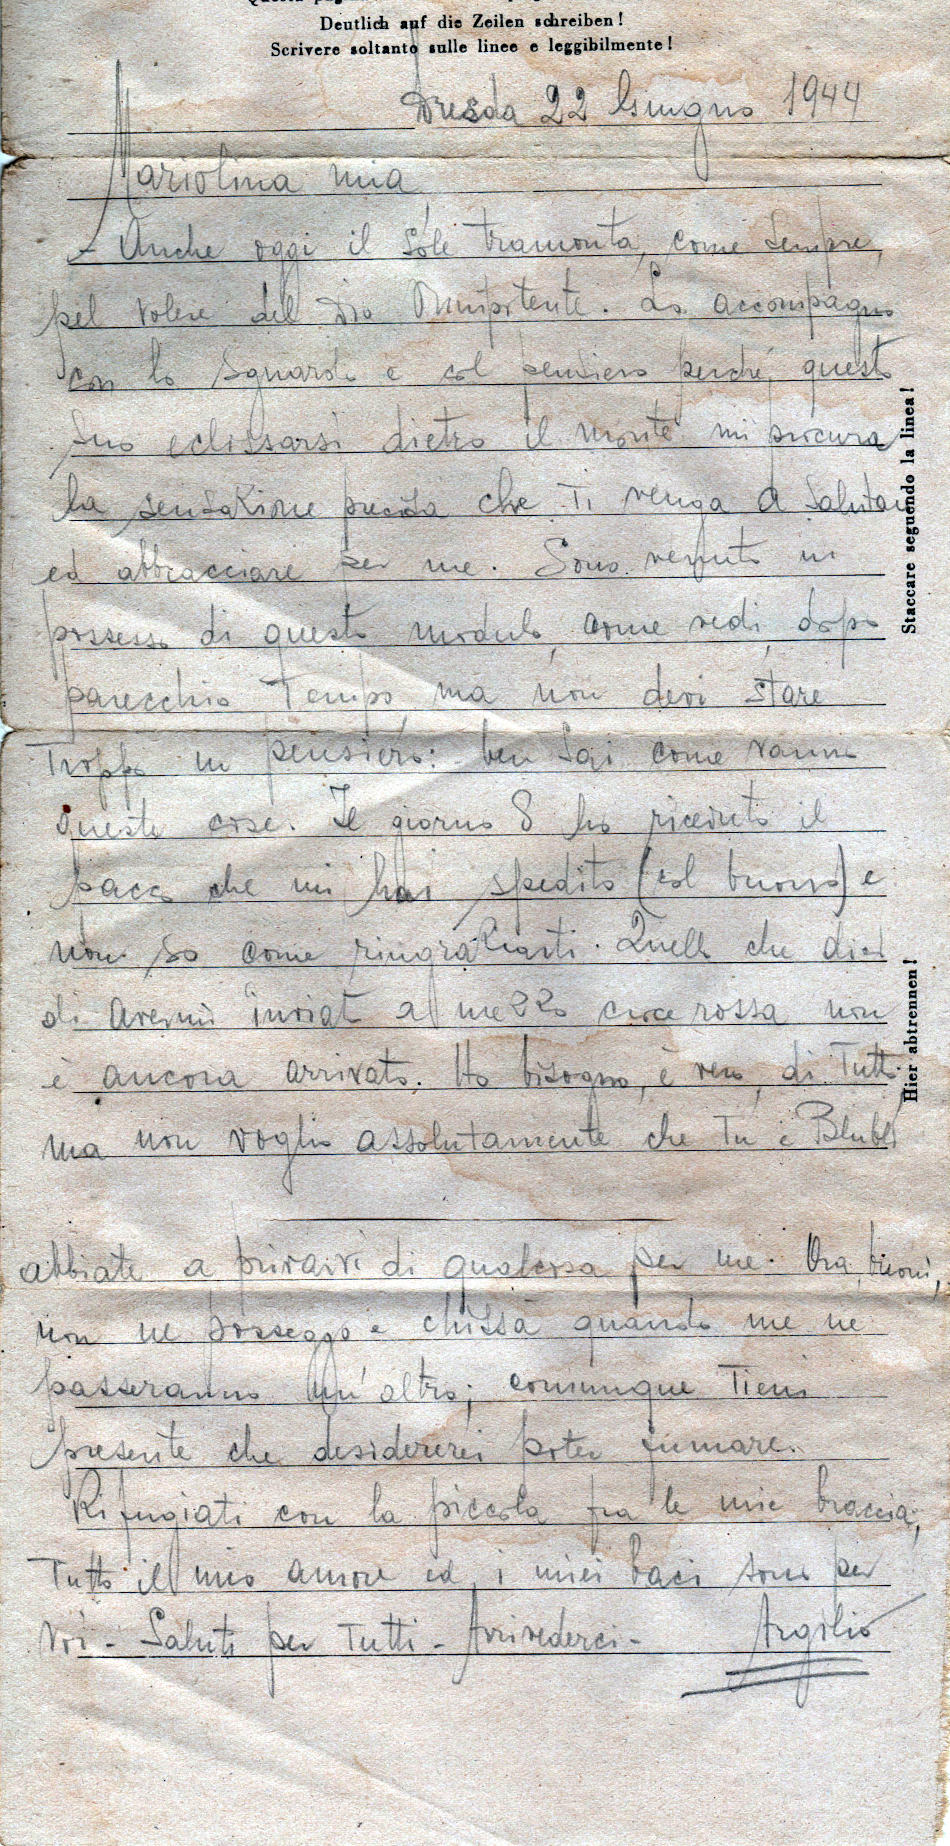 Deutlich auf die Zeilen schreiben!
Scrivere soltanto sulle linee e leggibilmente!
Dresda 22 Giugno 1944
Mariolina mia
- Anche oggi il sole tramonta, come sempre,
pel volere del Dio Omnipotente. Lo accompagno
con lo sguardo e col pensiero perché, questo
suo eclissarsi dietro il monte mi procura
la sensazione precisa che Ti venga a salutare
ed abbracciare per me. Sono venuto in
possesso di questo modulo, come vedi, dopo
parecchio Tempo, ma non devi stare
Troppo in pensiero: ben sai come vanno
queste cose. Il giorno 8 ho ricevuto il
pacco che mi hai spedito (col buono) e
non so come ringraziarti. Quello che dici
di avermi inviato a mezzo croce rossa non
è ancora arrivato. Ho bisogno, è vero, di Tutto,
ma non voglio assolutamente che Tu e
abbiate a privarvi di qualcosa per me. Ora, buoni,
non ne posseggo e chissà quando me ne
passeranno un'altro; comunque Tieni
presente che desidererei poter fumare.
Rifugiati con la piccola fra le mie braccia;
Tutto il mio amore ed i miei baci sono per
Voi - Saluti per Tutti - Arrivederci -
Argilio
Staccare seguendo la linea!
Hier abtrennen!